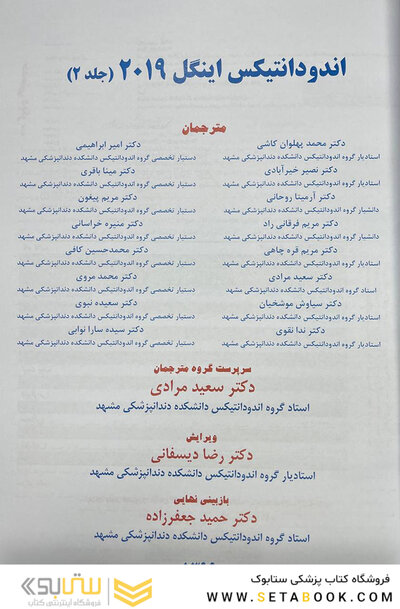 اندودانتیکس اینگل ۲۰۱۹ (جلد ۲)
مترجمان
دکتر محمد پهلوان کاشی
استادیار گروه اندودانتیکس دانشکده دندانپزشکی مشهد
دکتر نصیر خیرآبادی
استادیار گروه اندودانتیکس دانشکده دندانپزشکی مشهد
دکتر آرمیتا روحانی
دانشیار گروه اندودانتیکس دانشکده دندانپزشکی مشهد
دکتر مریم فرقانی راد
دانشیار گروه اندودانتیکس دانشکده دندانپزشکی مشهد
دکتر مریم قره چاهی
استادیار گروه اندودانتیکس دانشکده دندانپزشکی مشهد
دکتر سعید مرادی
استاد گروه اندودانتیکس دانشکده دندانپزشکی مشهد
دکتر سیاوش موشخیان
استادیار گروه اندودانتیکس دانشکده دندانپزشکی مشهد
دکتر ندا نقوی
استادیار گروه اندودانتیکس دانشکده دندانپزشکی مشهد
دکتر امیر ابراهیمی
دستیار تخصصی گروه اندودانتیکس دانشکده دندانپزشکی مشهد
دکتر مینا باقری
دستیار تخصصی گروه اندودانتیکس دانشکده دندانپزشکی مشهد
دکتر مریم پیغون
دستیار تخصصی گروه اندودانتیکس دانشکده دندانپزشکی مشهد
دکتر منیره خراسانی
دستیار تخصصی گروه اندودانتیکس دانشکده دندانپزشکی مشهد
دکتر محمدحسین کافی
دستیار تخصصی گروه اندودانتیکس دانشکده دندانپزشکی مشهد
دکتر محمد مروی
دستیار تخصصی گروه اندودانتیکس دانشکده دندانپزشکی مشهد
دکتر سعیده نبوی
دستیار تخصصی گروه اندودانتیکس دانشکده دندانپزشکی مشهد
دکتر سیده سارا نوابی
دستیار تخصصی گروه اندودانتیکس دانشکده دندانپزشکی مشهد
سرپرست گروه مترجمان
دکتر سعید مرادی
استاد گروه اندودانتیکس دانشکده دندانپزشکی مشهد
ویرایش
دکتر رضا دیسفانی
استادیار گروه اندودانتیکس دانشکده دندانپزشکی مشهد
بازبینی نهایی
دکتر حمید جعفرزاده
استاد گروه اندودانتیکس دانشکده دندانپزشکی مشهد
فروشگاه کتاب پزشکی ستابوک
www.SETABOOK.com
ستابوک
فروشگاه اینترنتی کتاب